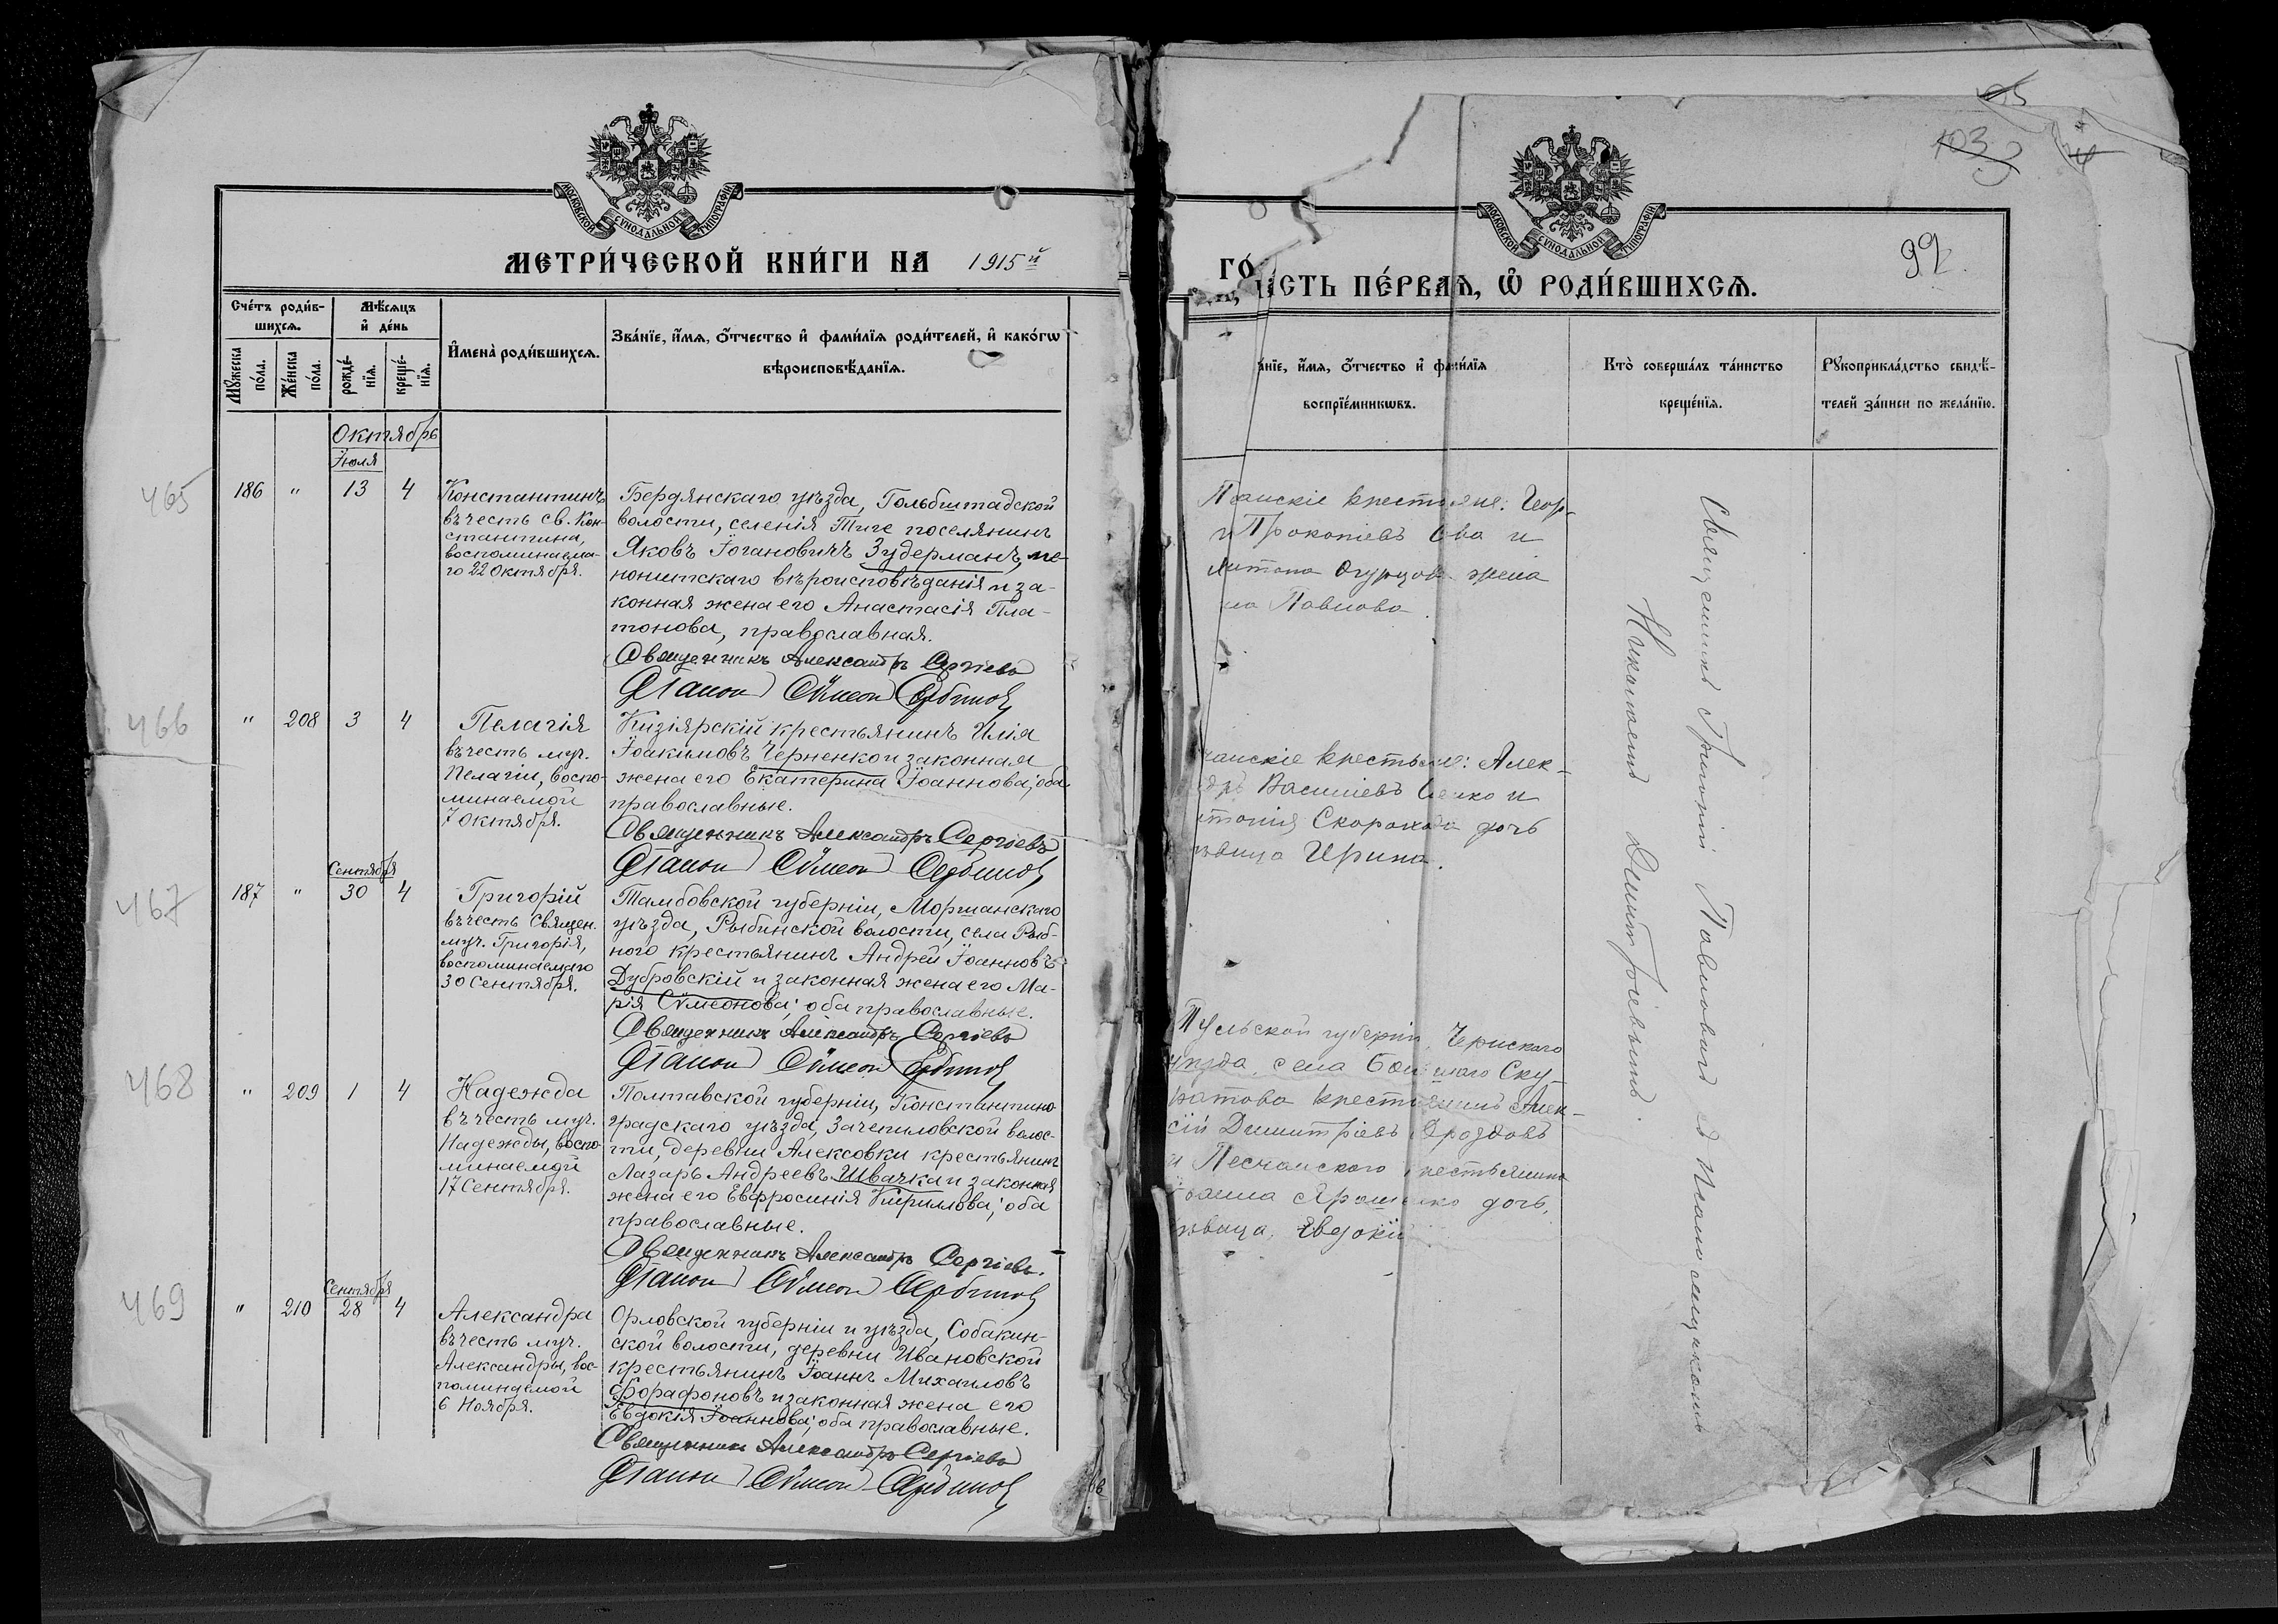 МОСКОВСКОЙ СѴНОДАЛЬНОЙ ТИПОГРАФІИ
МЕТРИ́ЧЕСКОЙ КНИ́ГИ НА 1915й
Сче́тъ роди́в-
шихсѧ.
Мꙋ́жеска по́ла.
Же́нска по́ла.
Мѣ́сѧцъ
и҆ де́нь
рожде́-
нїѧ.
креще́-
нїѧ.
И҆мена̀ роди́вшихсѧ.
Зва́нїе, и҆́мѧ, ѻ҆́тчество и҆ фами́лїѧ роди́телей, и҆ како́гѡ
вѣроисповѣ́данїѧ.
Октябрь
Іюля
465
186 " 13 4
Константинъ
въ честь св. Кон-
стантина,
воспоминаема-
го 22 Октября.
Бердянскаго уѣзда, Гольбштадской
волости, селенія Тиге поселянинъ
Яковъ Іогановичъ Зудерманъ, ме-
нонитскаго вѣроисповѣданія и за-
конная жена его Анастасія Пла-
тонова, православная.
Священникъ Александръ Сергіевъ
Діаконъ Сѵмеон Сербинов
466
" 208 3 4
Пелагія
въ честь муч.
Пелагіи, воспо-
минаемой
7 Октября.
Кизіярскій крестьянинъ Илія
Іоакимовъ Черненко и законная
жена его Екатерина Іоаннова; оба
православные.
Священникъ Александръ Сергіевъ
Діаконъ Сѵмеон Сербинов
467
Сентября
187 " 30 4
Григорій
въ честь Священ.
муч. Григорія,
воспоминаемаго
30 Сентября.
Тамбовской губерніи, Моршанскаго
уѣзда, Рыбинской волости, села Рыб-
ного крестьянинъ Андрей Іоанновъ
Дубровскій и законная жена его Ма-
рія Сѵмеонова; оба православные.
Священникъ Александръ Сергіевъ
Діаконъ Сѵмеон Сербинов
468
" 209 1 4
Надежда
въ честь муч.
Надежды, воспо-
минаемой
17 Сентября.
Полтавской губерніи, Константино-
градскаго уѣзда, Зачепиловской волос-
ти, деревни Алексовки крестьянинъ
Лазарь Андреевъ Швачка и законная
жена его Евфросинія Кириллова; оба
православные.
Священникъ Александръ Сергіевъ.
Діаконъ Сѵмеон Сербинов
469
Сентября
" 210 28 4
Александра
въ честь муч.
Александры, вос-
поминаемой
6 Ноября.
Орловской губерніи и уѣзда, Собакин-
ской волости, деревни Ивановской
крестьянинъ Іоаннъ Михаиловъ
Форафоновъ и законная жена его
Евдокія Іоаннова; оба православные.
Священникъ Александръ Сергіевъ
Діаконъ Сѵмеон Сербинов
103
99
МОСКОВСКОЙ СѴНОДАЛЬНОЙ ТИПОГРАФІИ
ГО́
СТЬ ПЕ́РВАѦ, Ѡ҆ РОДИ́ВШИХСѦ.
а́нїе, и҆́мѧ, ѻ҆́тчество и҆ фами́лїѧ
воспрїе́мникѡвъ.
Кто̀ соверша́лъ та́инство
креще́нїѧ.
Рꙋкоприкла́дство свидѣ́-
телей за́писи по жела́нїю.
крестьяне: Геор-
Прокопіевъ и
Огурцов жена
Павлова.
чанскіе крестьяне: Алек-
дръ Василіевъ и
Скорохода дочь
ѣвица Ирина.
Тульской губерніи, Чернскаго
уѣзда, села Большаго Ску-
ратова крестьянинъ Алек-
сій Димитріевъ Дроздовъ
и Песчанского крестьянина
дочь,
ѣвица, Евдокія
Священникъ Григорій Павловичъ съ Псаломщикомъ
Николаемъ Димитріевымъ.